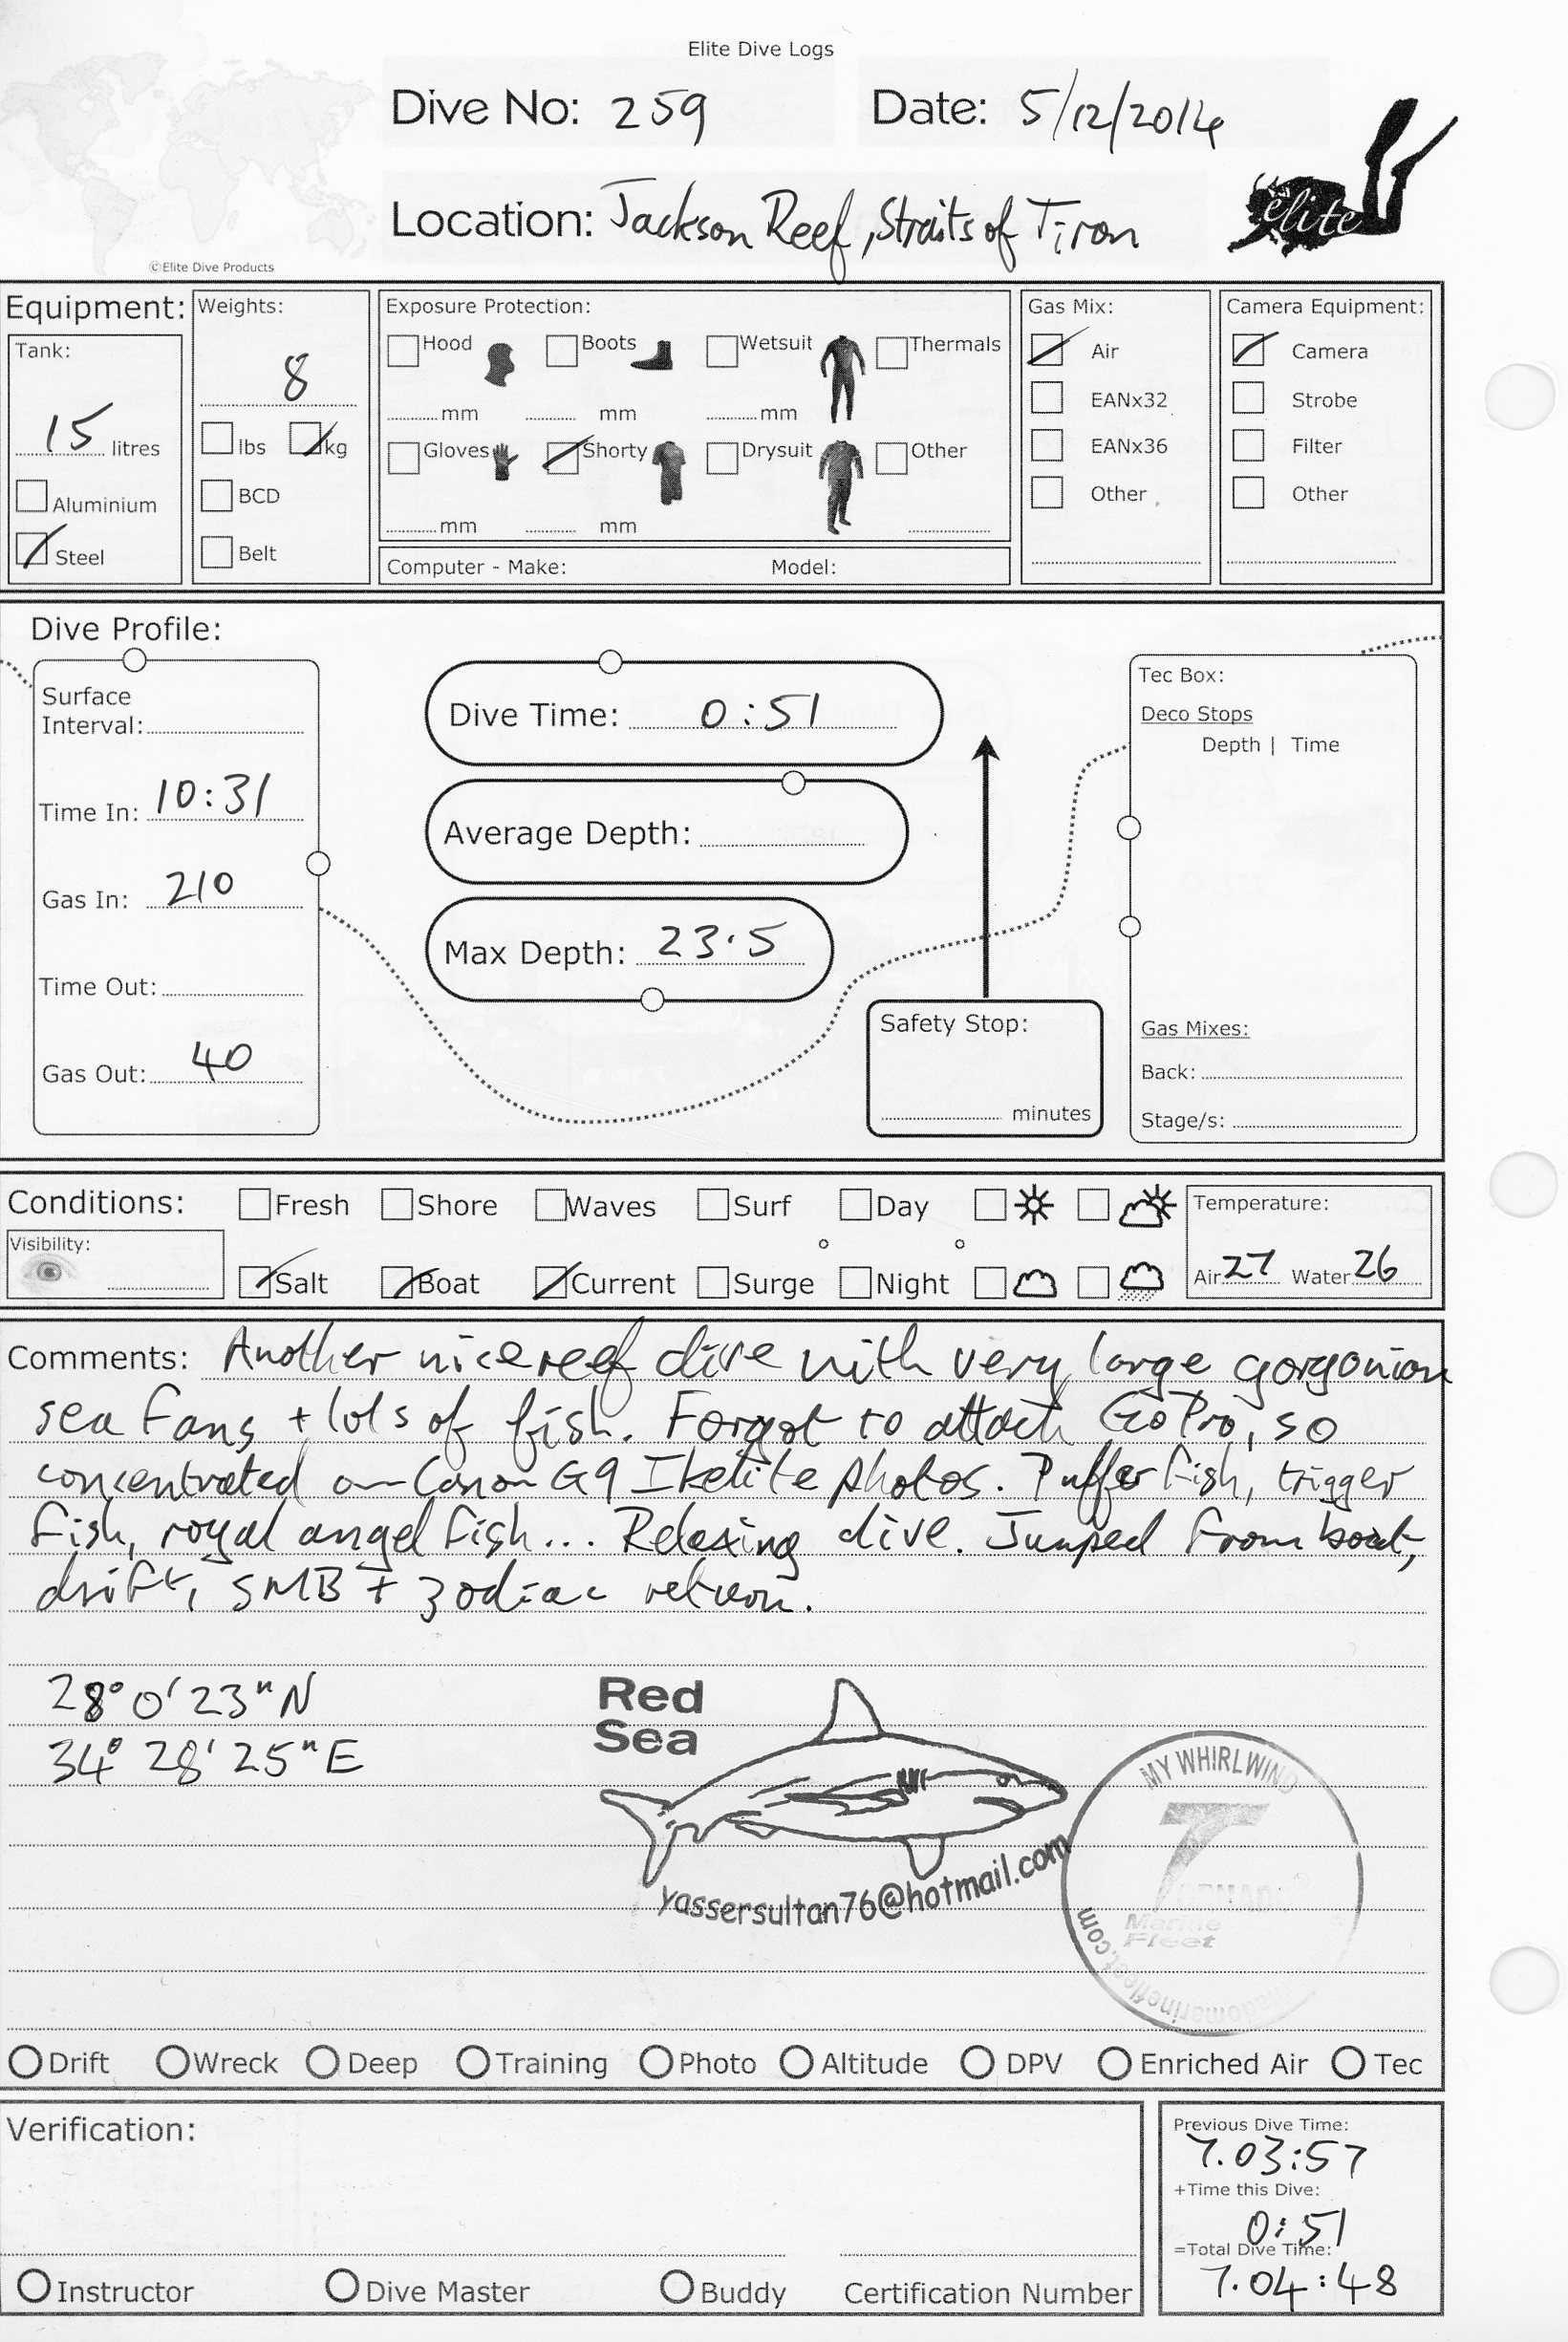 Elite Dive Logs
Dive No: 259
Date: 5/12/2014
Location: Jackson Reef, Straits of Tiran
élite
©Elite Dive Products
Equipment:
Tank:
15 litres
Aluminium
Steel
Weights:
8
lbs kg
BCD
Belt
Exposure Protection:
Hood Boots Wetsuit Thermals
mm mm mm
Gloves Shorty Drysuit Other
mm mm
Computer - Make: Model:
Gas Mix:
Air
EANx32
EANx36
Other
Camera Equipment:
Camera
Strobe
Filter
Other
Dive Profile:
Surface
Interval:
Time In: 10:31
Gas In: 210
Time Out:
Gas Out: 40
Dive Time: 0:51
Average Depth:
Max Depth: 23.5
Safety Stop:
minutes
Tec Box:
Deco Stops
Depth | Time
Gas Mixes:
Back:
Stage/s:
Conditions:
Visibility:
Fresh Shore Waves Surf Day
Salt Boat Current Surge Night
Temperature:
Air 27 Water 26
Comments: Another nice reef dive with very large gorgonian
sea fans + lots of fish. Forgot to attach GoPro, so
concentrated on Canon G9 Ikelite photos. Puffer fish, trigger
fish, royal angel fish... Relaxing dive. Jumped from boat,
drift, SMB + zodiac return.
28° 0' 23" N
34° 28' 25" E
Red
Sea
yassersultan76@hotmail.com
MY WHIRLWIND
Marine
Fleet
Drift Wreck Deep Training Photo Altitude DPV Enriched Air Tec
Verification:
Instructor Dive Master Buddy Certification Number
Previous Dive Time:
7.03:57
+Time this Dive:
0:51
=Total Dive Time:
7.04:48